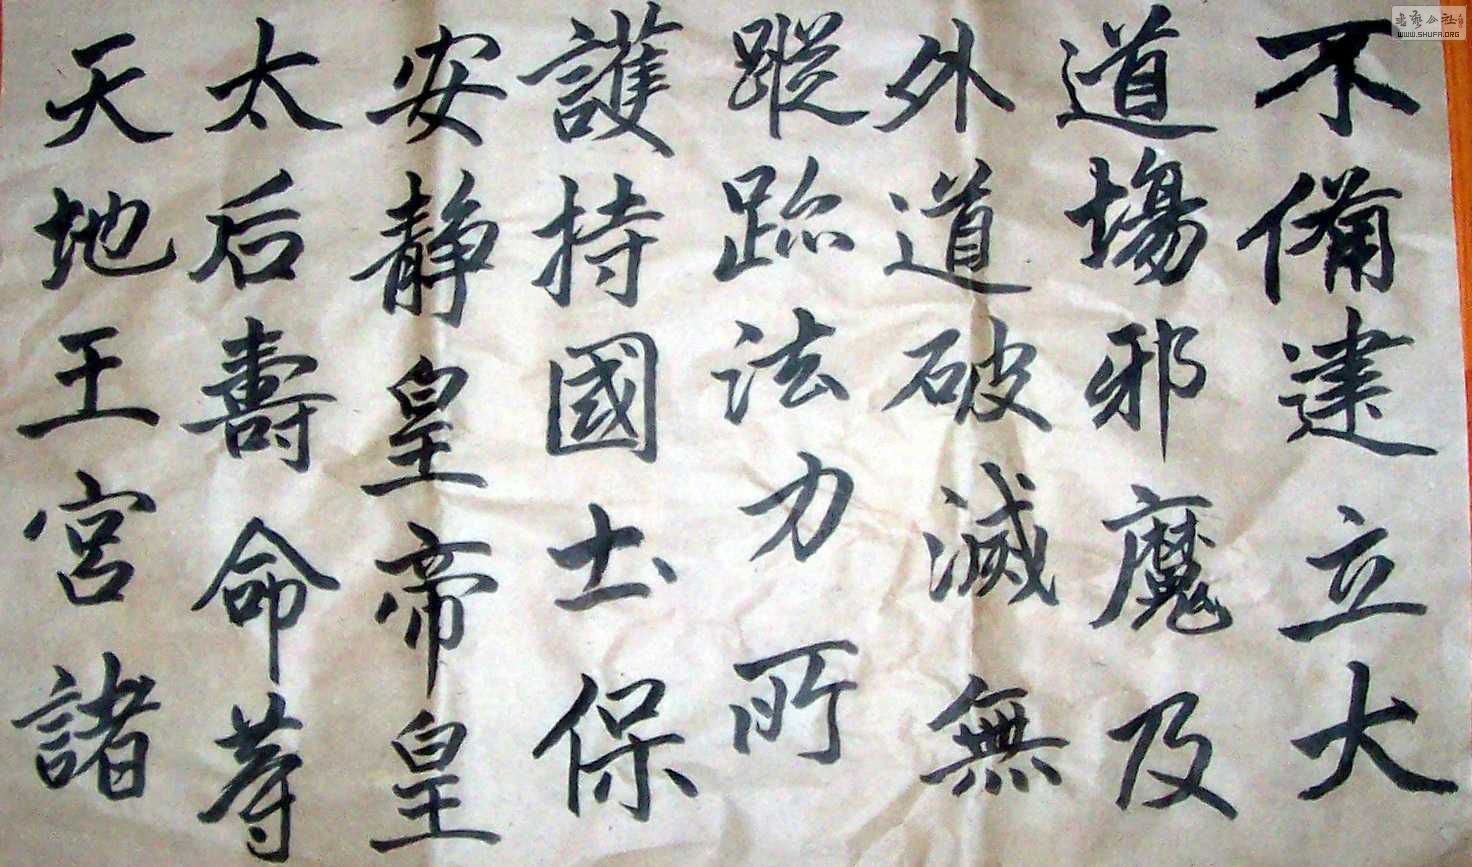 不備建立大
道塲邪魔及
外道破滅無
蹤跡法力所
護持國土保
安静皇帝皇
太后壽命等
天地王宮諸
书艺公社
WWW.SHUFA.ORG